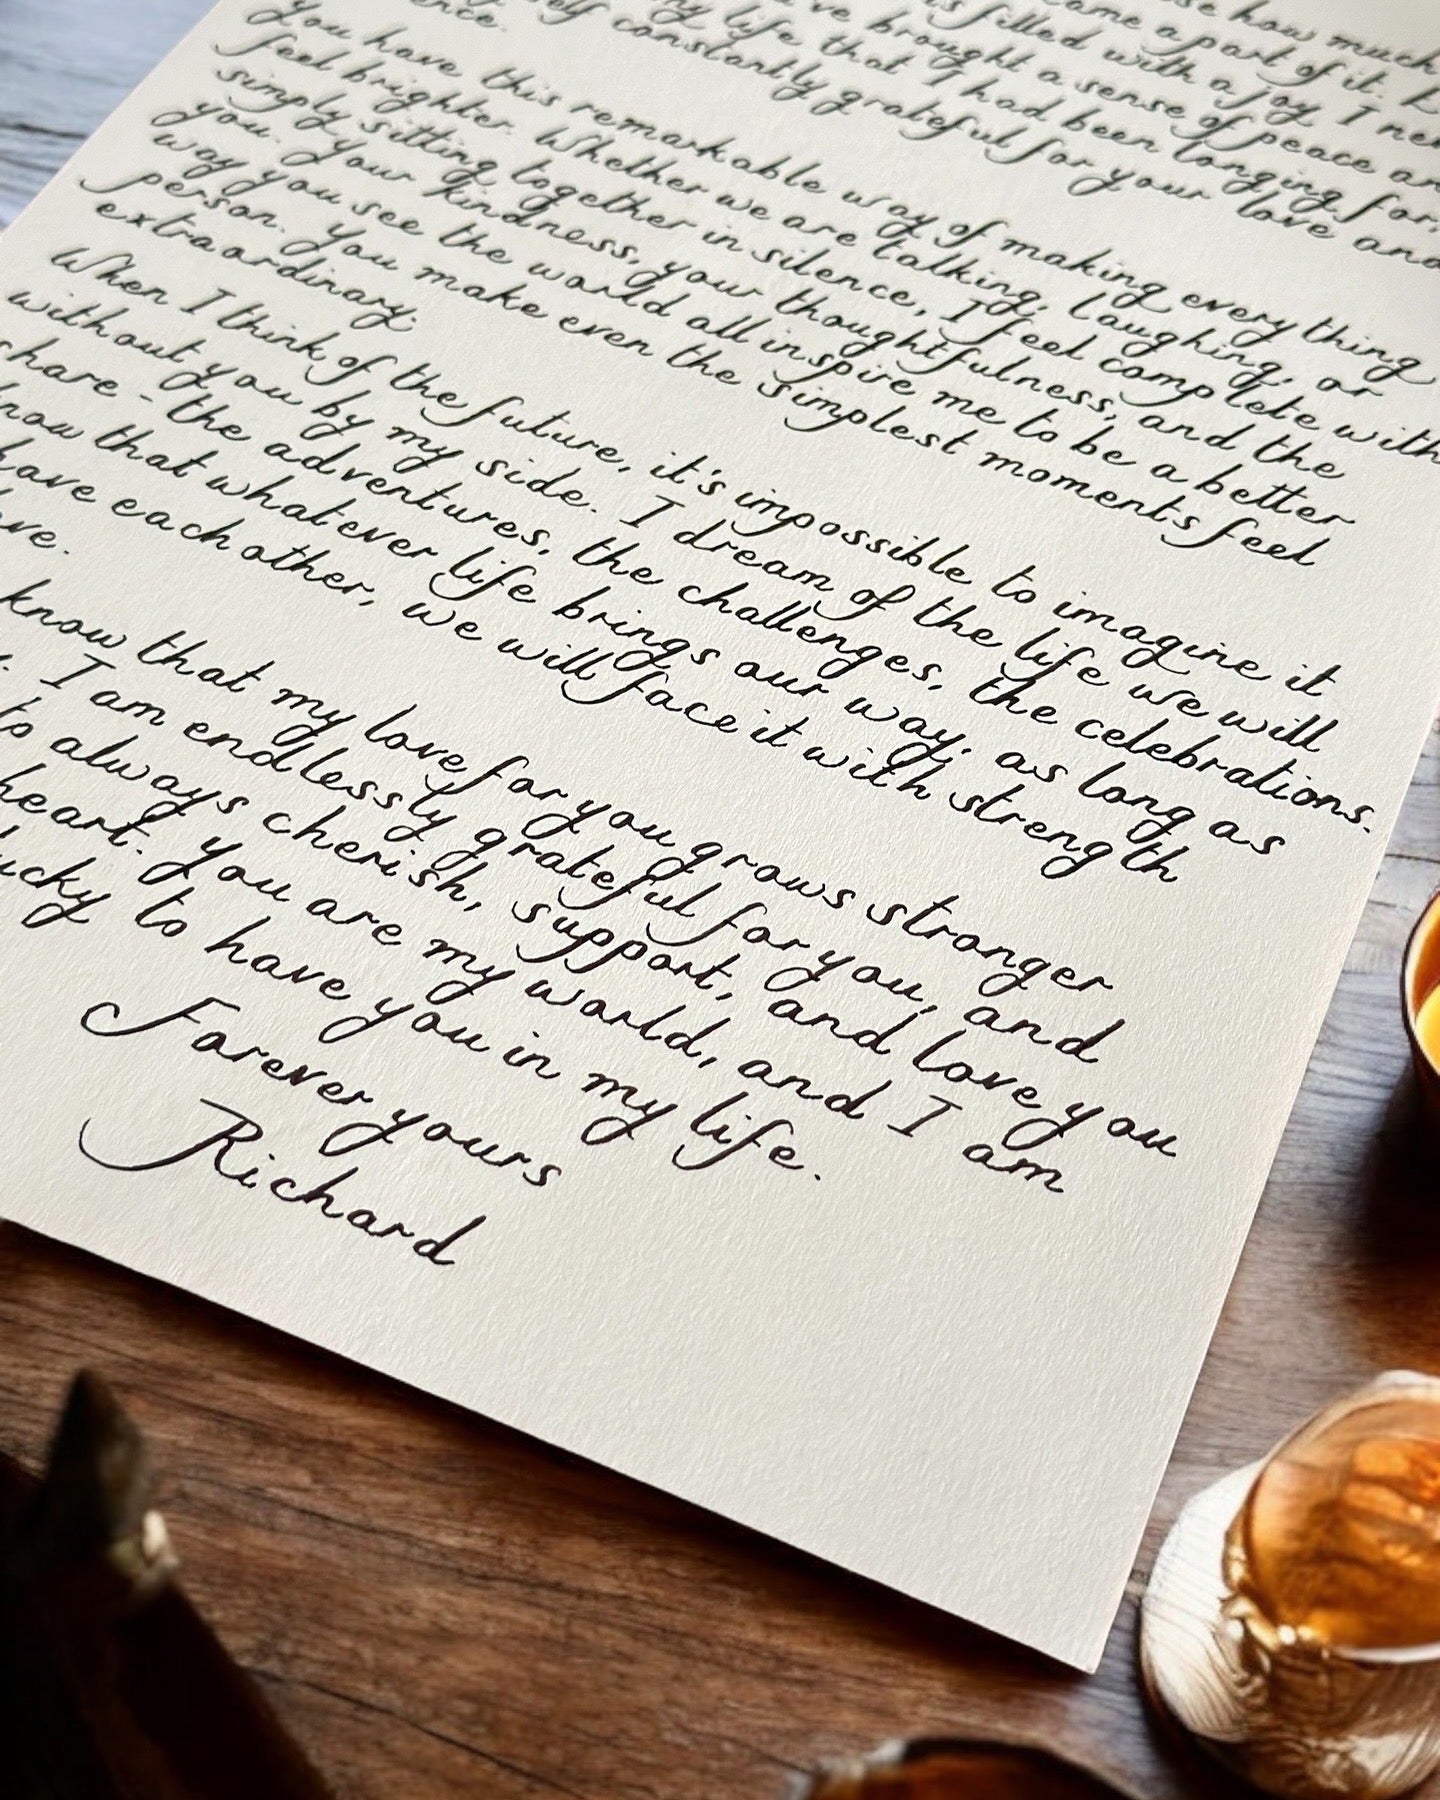 how much
came a part of it.
is filled with a joy I
've brought a sense of peace
my life that I had been longing for,
self constantly grateful for your love and
ence.
You have this remarkable way of making everything
feel brighter. Whether we are talking, laughing, or
simply sitting together in silence, I feel complete with
you. Your kindness, your thoughtfulness, and the
way you see the world all inspire me to be a better
person. You make even the simplest moments feel
extraordinary.
When I think of the future, it's impossible to imagine it
without you by my side. I dream of the life we will
share - the adventures, the challenges, the celebrations.
know that whatever life brings our way, as long as
have each other, we will face it with strength
ve.
know that my love for you grows stronger
I am endlessly grateful for you, and
to always cherish, support, and love you
heart. You are my world, and I am
lucky to have you in my life.
Forever yours
Richard